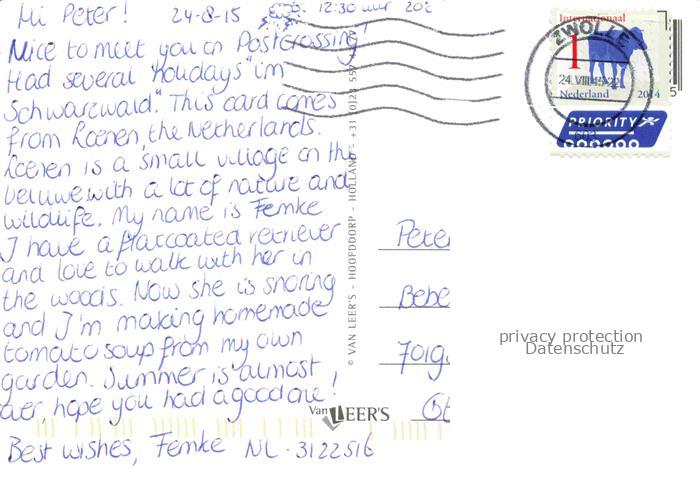 Hi Peter! 24-8-15 12:30 uur 20°
Nice to meet you on Postcrossing!
Had several "holidays" im
Schwarzwald". This card comes
from Loenen, the Netherlands.
Loenen is a small village on the
Veluwe with a lot of nature and
wildlife. My name is Femke
I have a flatcoated retriever
and love to walk with her in
the woods. Now she is snoring
and I'm making homemade
tomato soup from my own
garden. Summer is almost
over, hope you had a good one!
Best wishes, Femke NL-3122516
© VAN LEER'S - HOOFDDORP - HOLLAND
Van LEER'S
Internationaal
1
Nederland 2014
PRIORITY
ZWOLLE
24.VIII.15
Peter
Bebe
701g
privacy protection
Datenschutz